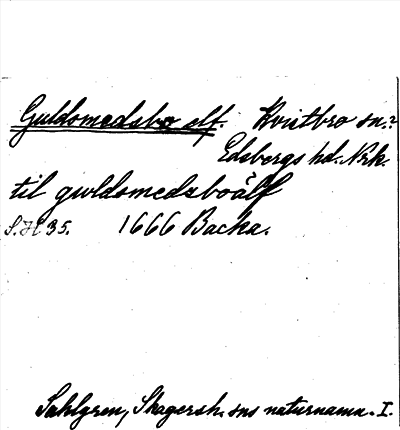 Guldsmedsbo elf. Kvistbro sn.?
Edsbergs hd. Nrk.
til guldsmedsboälf
S.H 35. 1666 Backa.
Sahlgren, Skagersh. sns naturnamn. I.